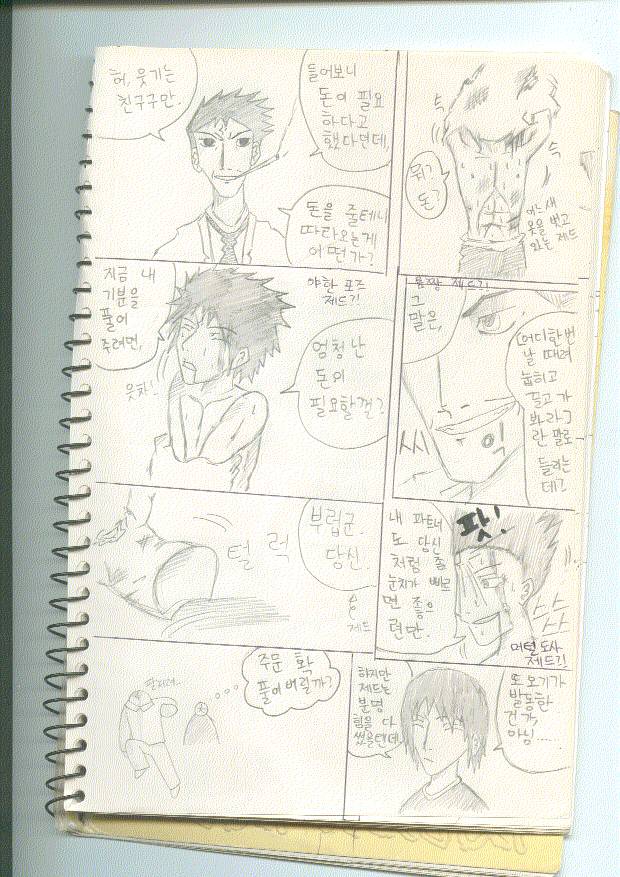 허, 웃기는
친구구만.
들어보니
돈이 필요
하다고
했다면데,
돈을 줄테니
따라오는게
어떤가?
득
득
뭐?
돈?
어느새
옷을 벗고
있는 제드
지금 내
기분을
풀어
주려면,
야한 포즈
제드!
웃차!
엄청난
돈이
필요할껄?
그
말은,
어디 한번
날 때려
눕히고
끌고 가
봐라
란 말로
들리는
데?
씨
익
털럭
부럽군.
당신.
제드
내 파트너
도 당신
처럼 좀
눈치가 빠르
면 좋으
련만.
팟!
스스
머털도사
제드!
주문 확
풀어버릴까?
하지만
제드는
분명
힘을 다
썼을텐데..
또 오기가
발동한
건가,
아님.....